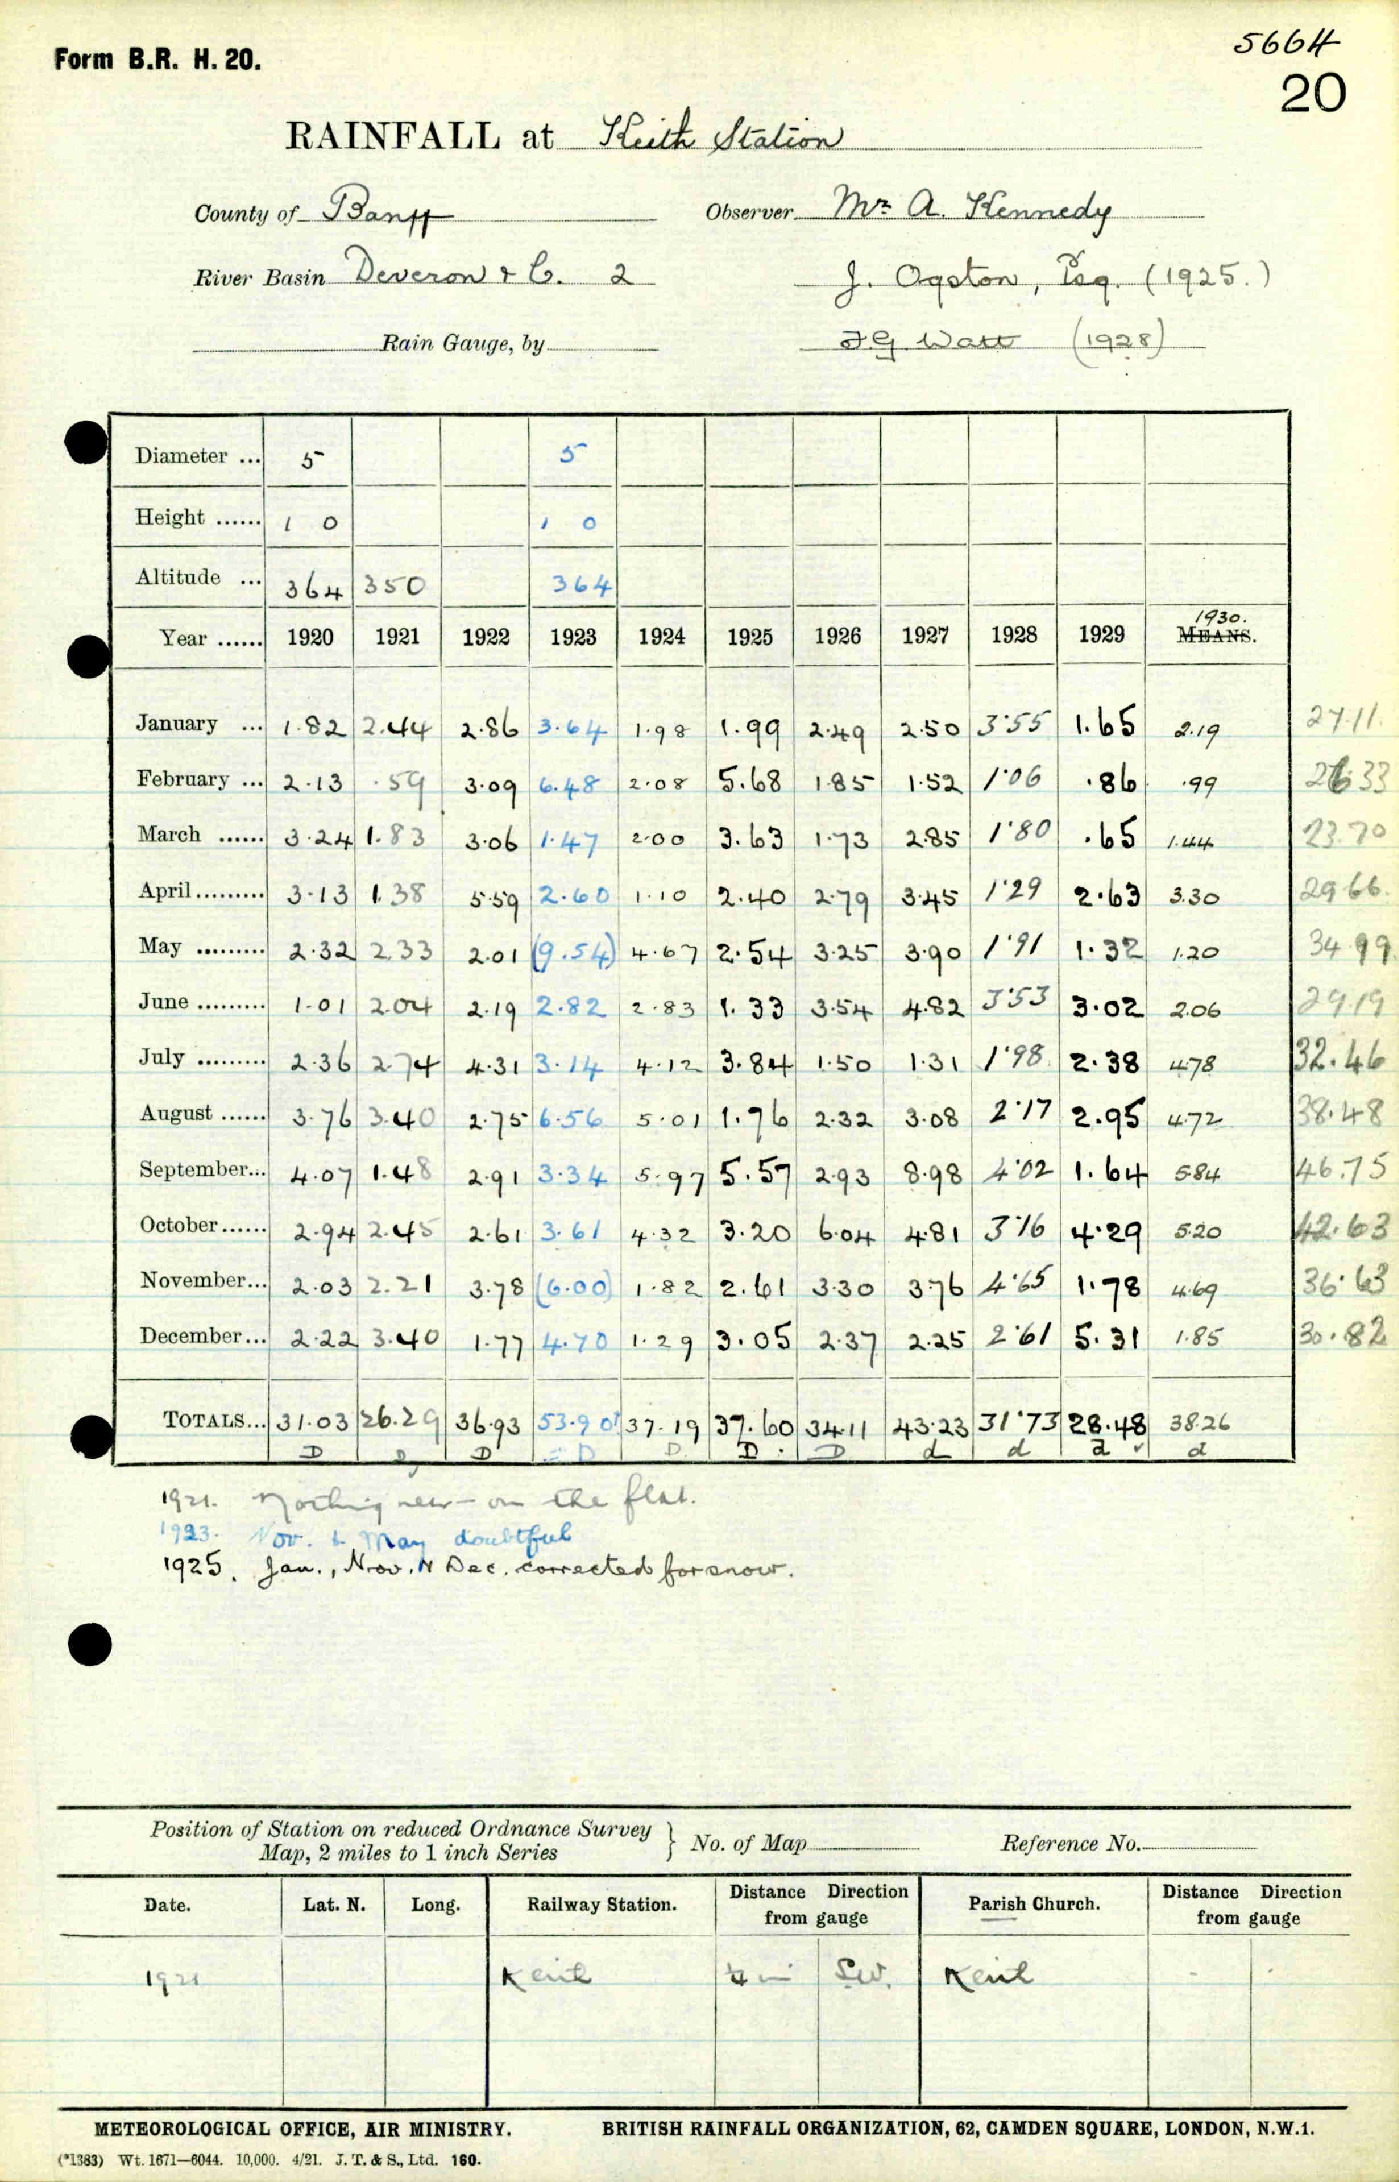 5664
Form B.R. H. 20.
20
RAINFALL at Keith Station
County of Banff Observer Mr. A. Kennedy
River Basin Deveron & C. 2 J. Ogston, Esq. (1925.)
Rain Gauge, by J.G Watt (1928)
Diameter ... 5 5
Height ...... 1 0 1 0
Altitude ... 364 350 364
1930.
Year ...... 1920 1921 1922 1923 1924 1925 1926 1927 1928 1929 MEANS.
January ... 1.82 2.44 2.86 3.64 1.98 1.99 2.49 2.50 3.55 1.65 2.19 27.11
February ... 2.13 .59 3.09 6.48 2.08 5.68 1.85 1.52 1.06 .86 .99 26.33
March ...... 3.24 1.83 3.06 1.47 2.00 3.63 1.73 2.85 1.80 .65 1.44 23.70
April ......... 3.13 1.38 5.59 2.60 1.10 2.40 2.79 3.45 1.29 2.63 3.30 29.66
May ......... 2.32 2.33 2.01 (9.54) 4.67 2.54 3.25 3.90 1.91 1.32 1.20 34.99
June ......... 1.01 2.04 2.19 2.82 2.83 1.33 3.54 4.82 3.53 3.02 2.06 29.19
July ......... 2.36 2.74 4.31 3.14 4.12 3.84 1.50 1.31 1.98 2.38 4.78 32.46
August ...... 3.76 3.40 2.75 6.56 5.01 1.76 2.32 3.08 2.17 2.95 4.72 38.48
September... 4.07 1.48 2.91 3.34 5.97 5.57 2.93 8.98 4.02 1.64 5.84 46.75
October...... 2.94 2.45 2.61 3.61 4.32 3.20 6.04 4.81 3.16 4.29 5.20 42.63
November... 2.03 2.21 3.78 (6.00) 1.82 2.61 3.30 3.76 4.65 1.78 4.69 36.63
December... 2.22 3.40 1.77 4.70 1.29 3.05 2.37 2.25 2.61 5.31 1.85 30.82
TOTALS... 31.03 26.29 36.93 53.90? 37.19 37.60 34.11 43.23 31.73 28.48 38.26
D D D D D D D d d d d
1921. Nothing near on the flat.
1923. Nov. & May doubtful
1925. Jan., Nov. & Dec. corrected for snow.
Position of Station on reduced Ordnance Survey
Map, 2 miles to 1 inch Series } No. of Map Reference No.
Date. Lat. N. Long. Railway Station. Distance Direction from gauge Parish Church. Distance Direction from gauge
1921 Keith ¼ m SW. Keith
METEOROLOGICAL OFFICE, AIR MINISTRY. BRITISH RAINFALL ORGANIZATION, 62, CAMDEN SQUARE, LONDON, N.W.1.
(*1383) Wt. 1671—6044. 10,000. 4/21. J. T. & S., Ltd. 160.